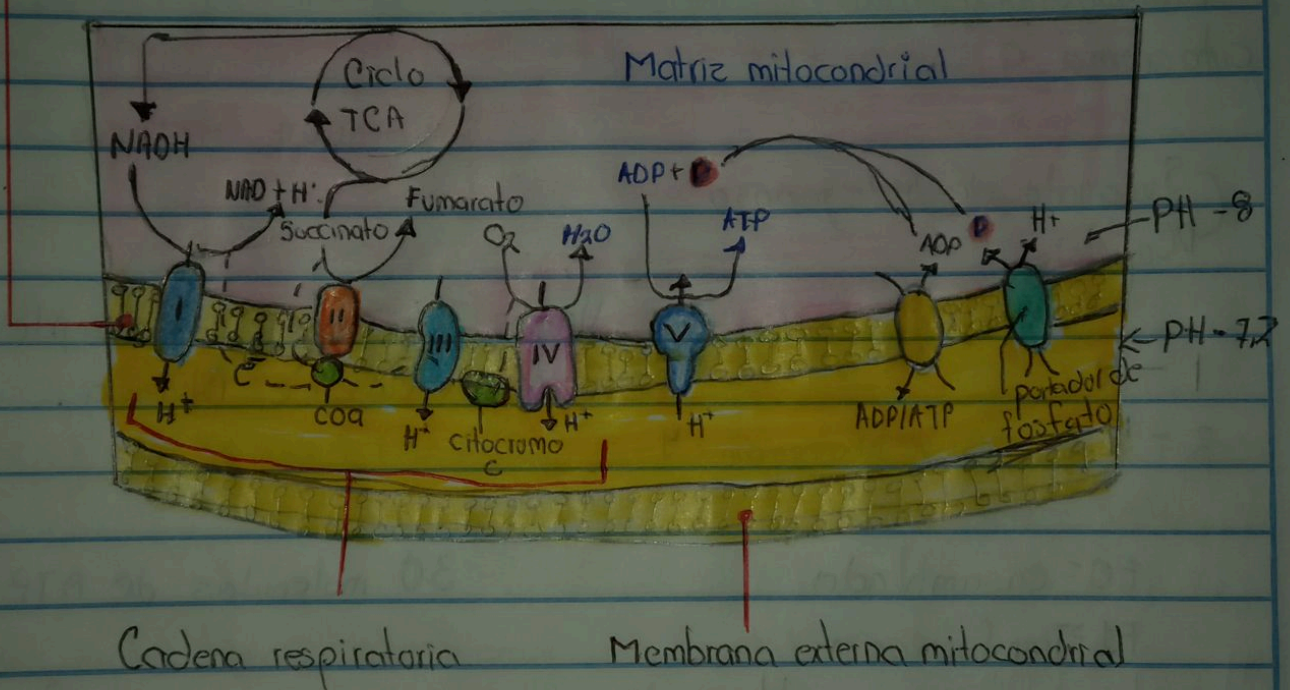 Matriz mitocondrial
Ciclo
TCA
NADH
NAD + H:
Succinato
Fumarato
O2
H2O
ADP + P
ATP
ADP
P
H+
PH - 8
PH - 7,2
I
II
III
IV
V
e-
H+
COQ
H+
citocromo
c
H+
H+
ADP/ATP
portador de
fosfato
Cadena respiratoria
Membrana externa mitocondrial